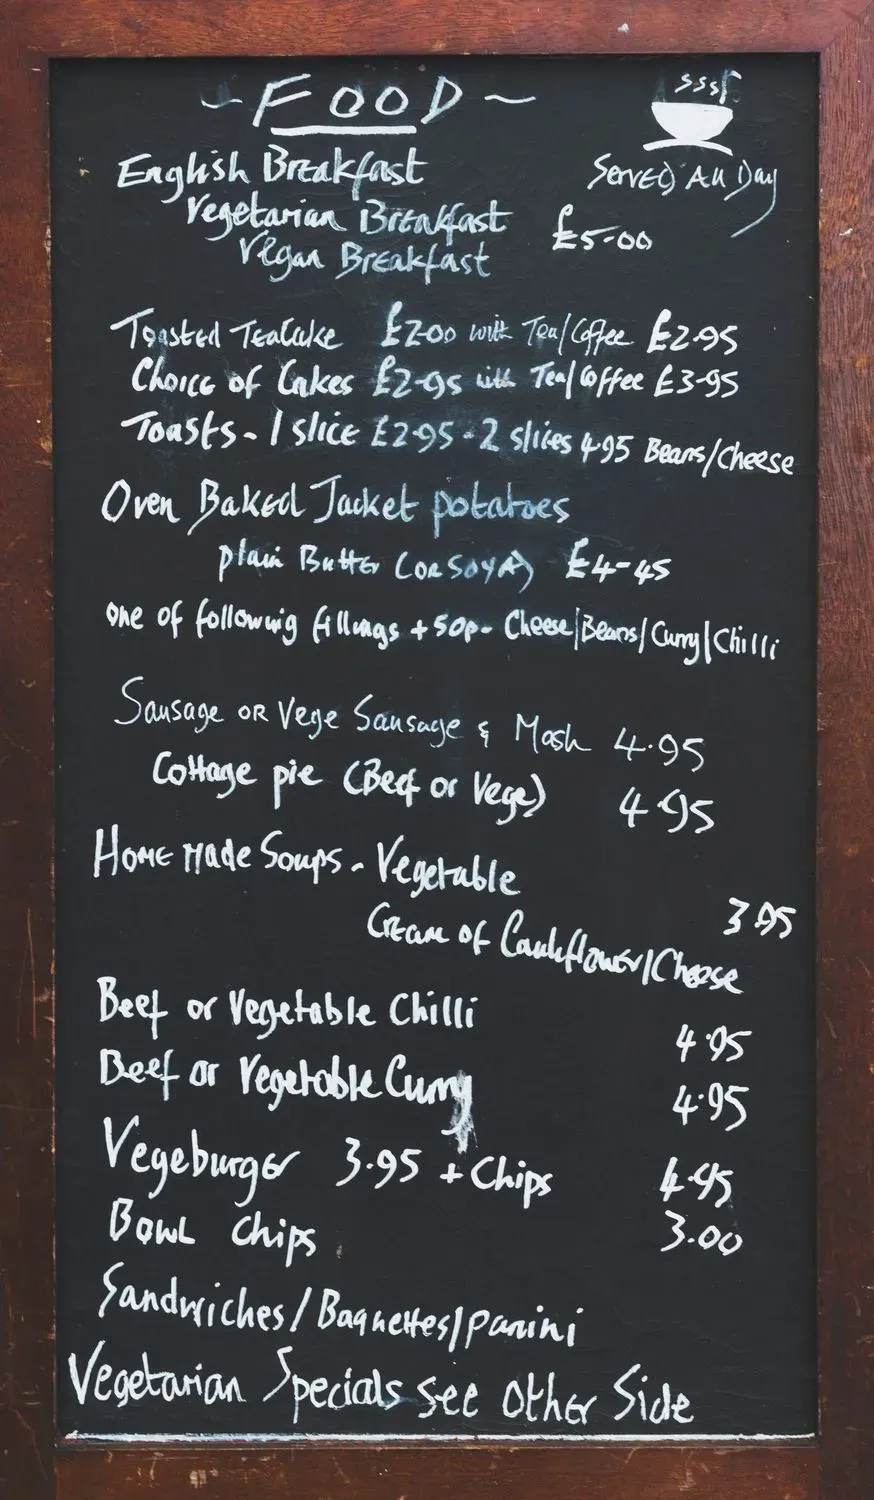 ~ FOOD ~
sssf
Served All Day
English Breakfast
Vegetarian Breakfast £5-00
Vegan Breakfast
Toasted TeaCake £2-00 with Tea/Coffee £2-95
Choice of Cakes £2-95 with Tea/Coffee £3-95
Toasts - 1 slice £2-95 - 2 slices 4-95 Beans/Cheese
Oven Baked Jacket potatoes
plain Butter (or SOYA) £4-45
one of following fillings + 50p - Cheese/Beans/Curry/Chilli
Sausage or Vege Sausage & Mash 4.95
Cottage pie (Beef or Vege) 4.95
Home Made Soups - Vegetable
3.95
Cream of Cauliflower/Cheese
Beef or Vegetable Chilli 4.95
Beef or Vegetable Curry 4.95
Vegeburger 3.95 + Chips 4.95
Bowl chips 3.00
Sandwiches/Baguettes/panini
Vegetarian Specials see other Side